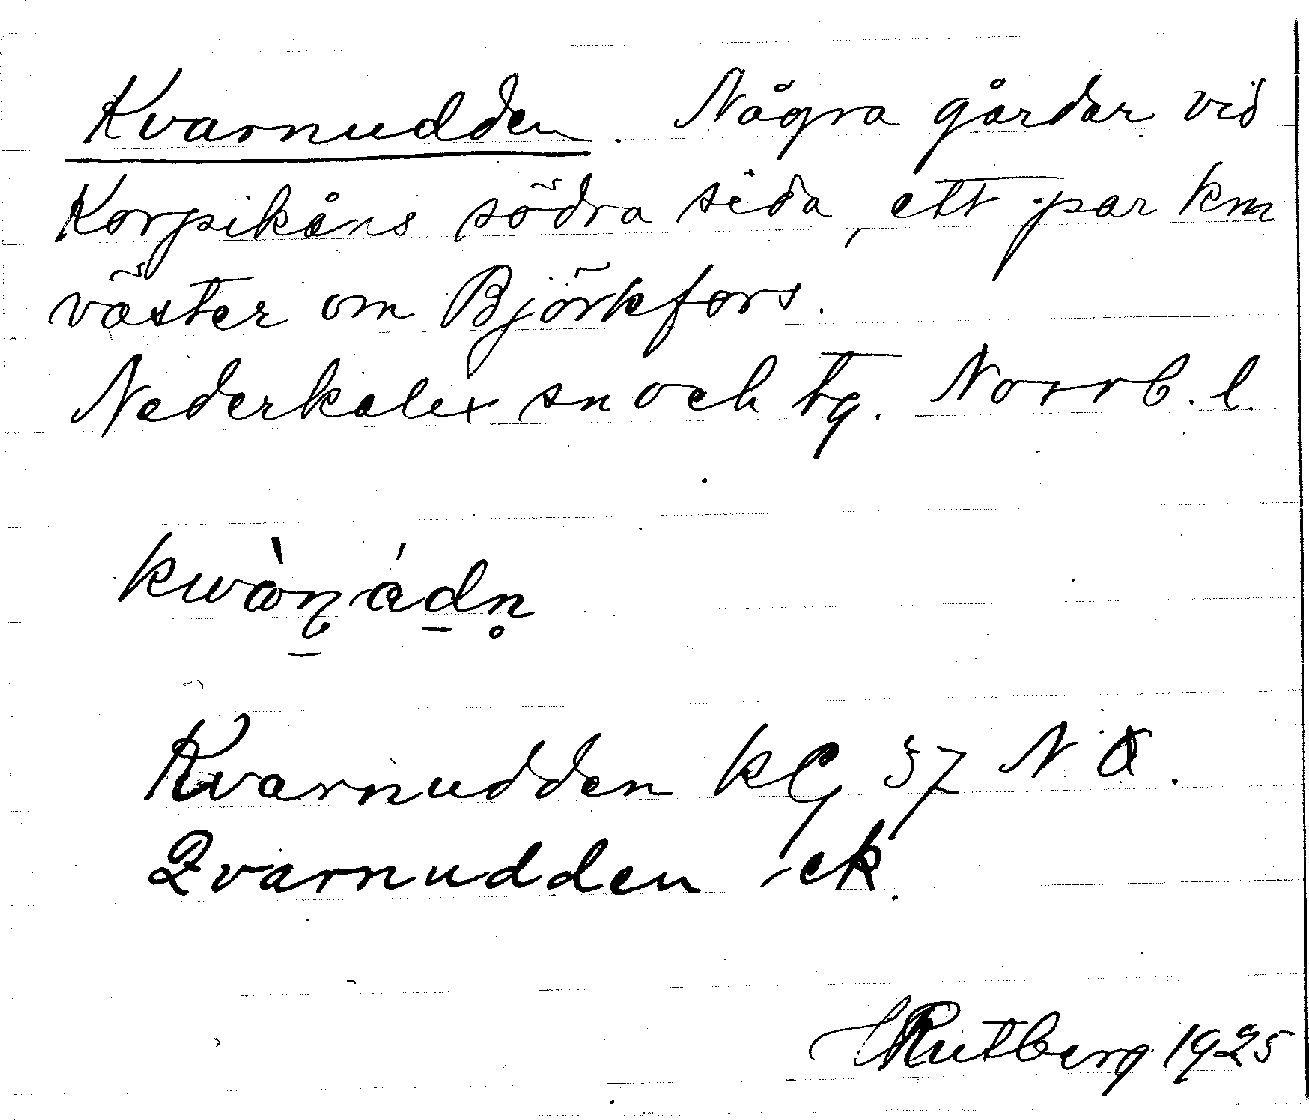 Kvarnudden. Några gårdar vid
Korpikåns södra sida, ett par km
väster om Björkfors.
Nederkalix sn och tg. Norrb. l.
kwànádn̥
Kvarnudden kG 37 N Ö.
Qvarnudden ek.
HRutberg 1925